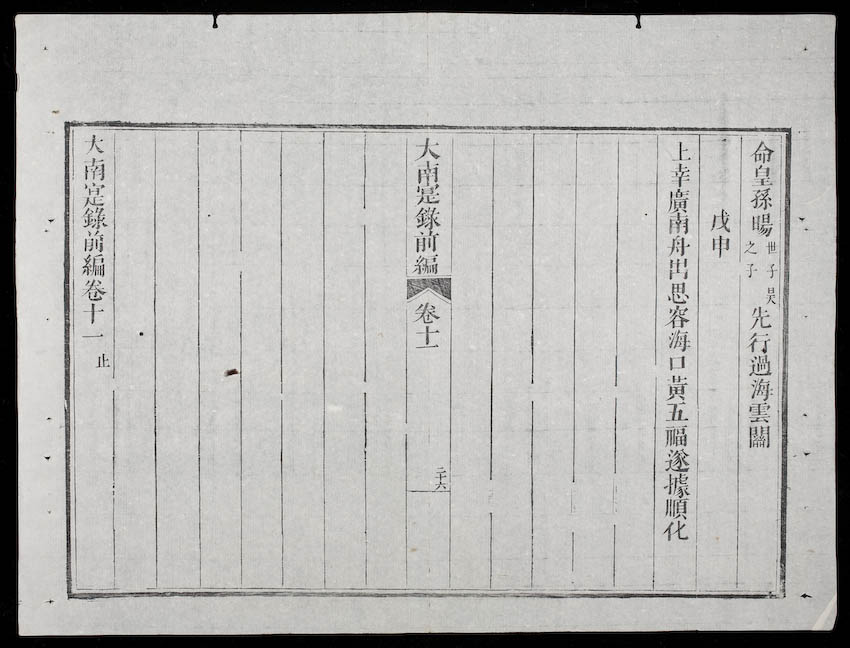 命皇孫暘世子昊之子先行過海雲關
戊申
上幸廣南舟出思容海口黃五福遂據順化
大南寔錄前編
卷十一
二十六
大南寔錄前編卷十一
止